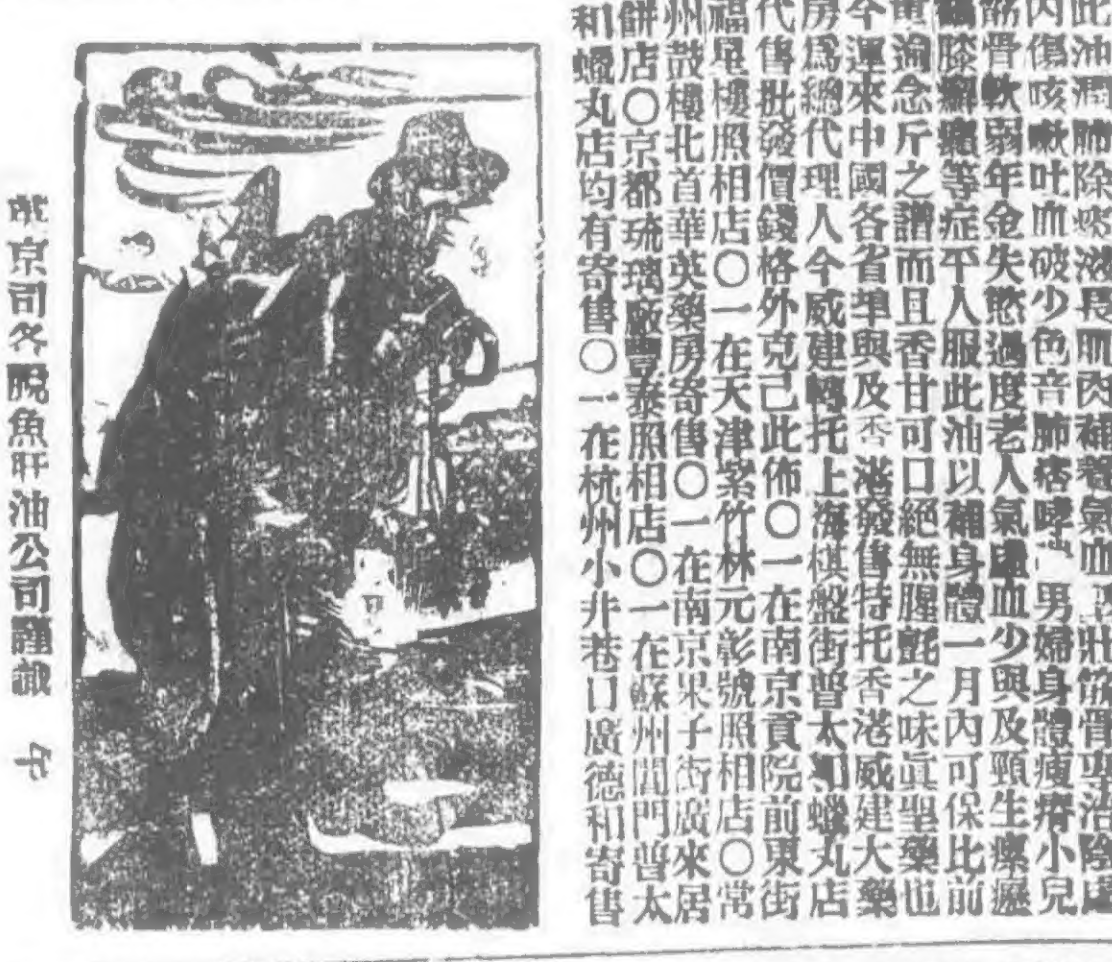 此油潤肺除痰滋長肌肉補養氣血壯筋骨專治陰虛
內傷咳嗽吐血破少色音肺癆哮男婦身體瘦瘠小兒
筋骨軟弱年金失慾過度老人氣虛血少與及頸生瘰癧
膝癬瘡等症平人服此油以補身體一月內可保比前
重逾念斤之譜而且香甘可口絕無腥羶之味眞聖藥也
今運來中國各省埠與及香港發售特托香港威建大藥
房爲總代理人今威建轉托上海棋盤街普太和蠟丸店
代售批發價錢格外克己此佈〇一在南京貢院前東街
福星樓照相店〇一在天津紫竹林元彰號照相店〇常
州鼓樓北首華英藥房寄售〇一在南京果子街廣來居
餅店〇京都琉璃廠豐泰照相店〇一在蘇州閶門普太
和蠟丸店均有寄售〇一在杭州小井巷口廣德和寄售
京司各脫魚肝油公司謹識 午